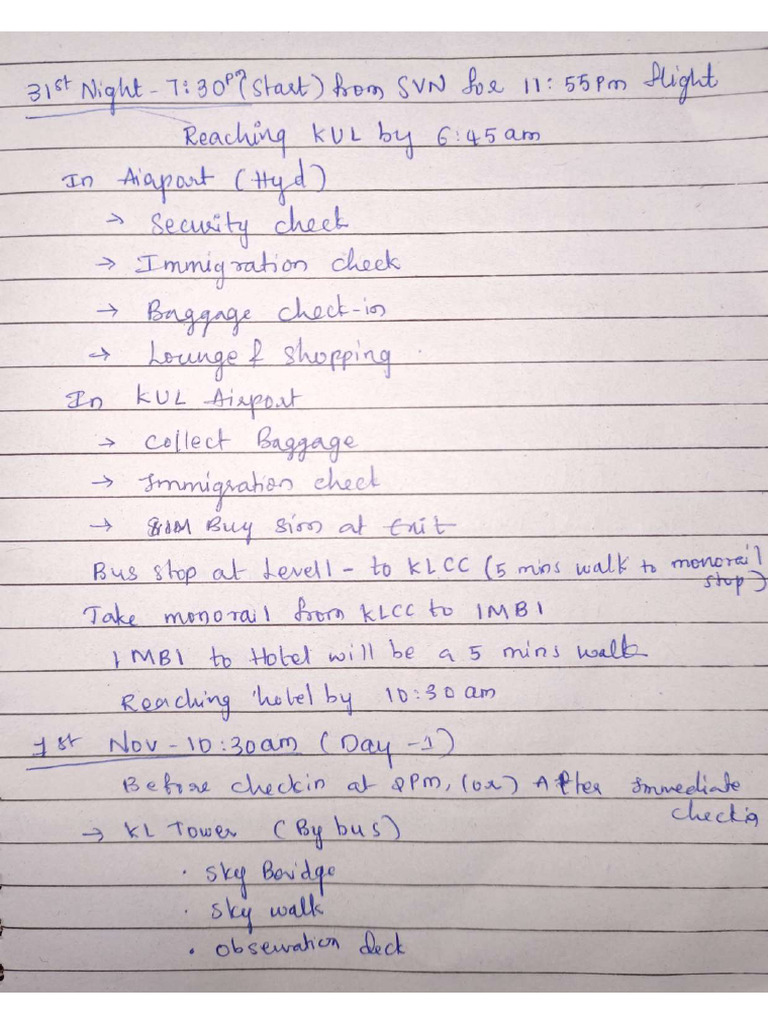 31st Night - 7:30pm (Start) from SVN for 11:55pm flight
Reaching KUL by 6:45am
In Airport (Hyd)
→ Security check
→ Immigration check
→ Baggage check-in
→ Lounge & Shopping
In KUL Airport
→ Collect Baggage
→ Immigration check
→ Buy Sim at Exit
Bus stop at Level 1 - to KLCC (5 mins walk to monorail
stop)
Take monorail from KLCC to IMBI
IMBI to Hotel will be a 5 mins walk
Reaching hotel by 10:30am
1st Nov - 10:30am (Day-1)
Before checkin at 2PM, (or) After immediate
checkin
→ KL Tower (By bus)
• Sky Bridge
• Sky walk
• Observation deck